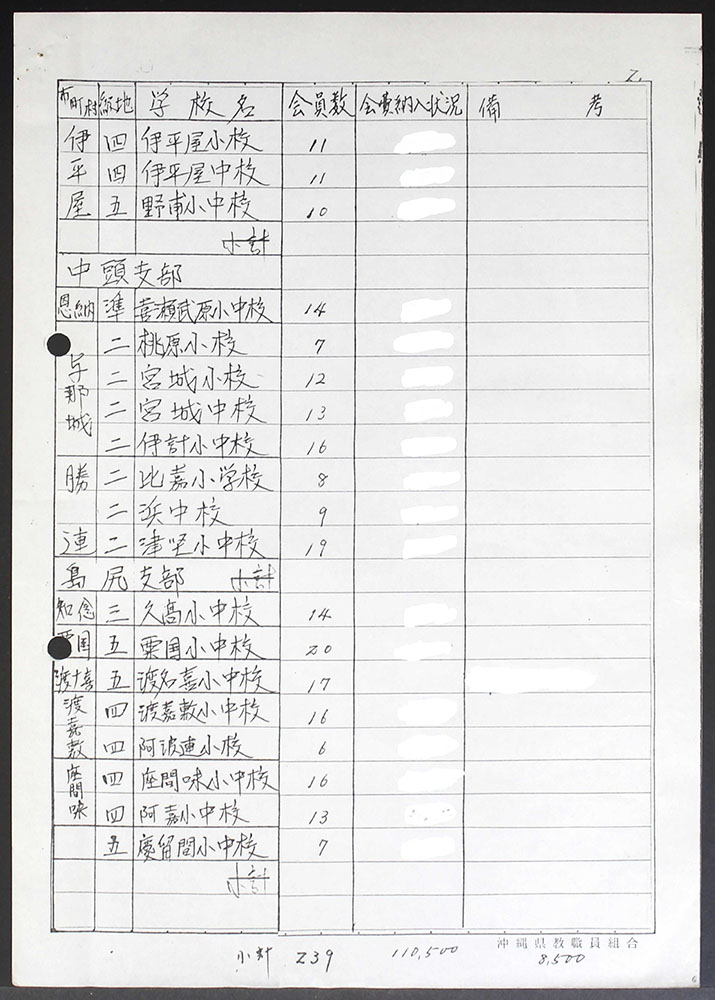 2.
市町村 級地 学校名 会員数 会費納入状況 備考
伊 四 伊平屋小校 11
平 四 伊平屋中校 11
屋 五 野甫小中校 10
小計
中頭支部
恩納 準 喜瀬武原小中校 14
二 桃原小校 7
与那城 二 宮城小校 12
二 宮城中校 13
二 伊計小中校 16
勝 二 比嘉小学校 8
二 浜中校 9
連 二 津堅小中校 19
島尻支部 小計
知念 三 久高小中校 14
粟国 五 粟国小中校 20
渡名喜 五 渡名喜小中校 17
渡嘉敷 四 渡嘉敷小中校 16
四 阿波連小校 6
座間味 四 座間味小中校 16
四 阿嘉小中校 13
五 慶留間小中校 7
小計
沖縄県教職員組合
小計 239 110,500 8,500